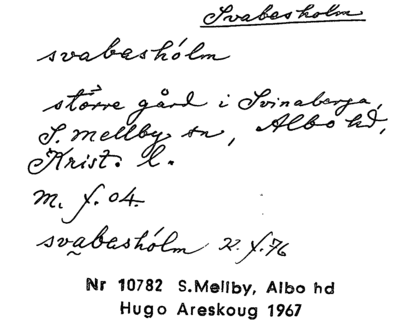 Svabesholm
svabeshólm
större gård i Svinaberga,
S. Mellby sn, Albo hd,
Krist. l.
m. f. 04.
sva̰beshólm kv. f. 76
Nr 10782 S.Mellby, Albo hd
Hugo Areskoug 1967